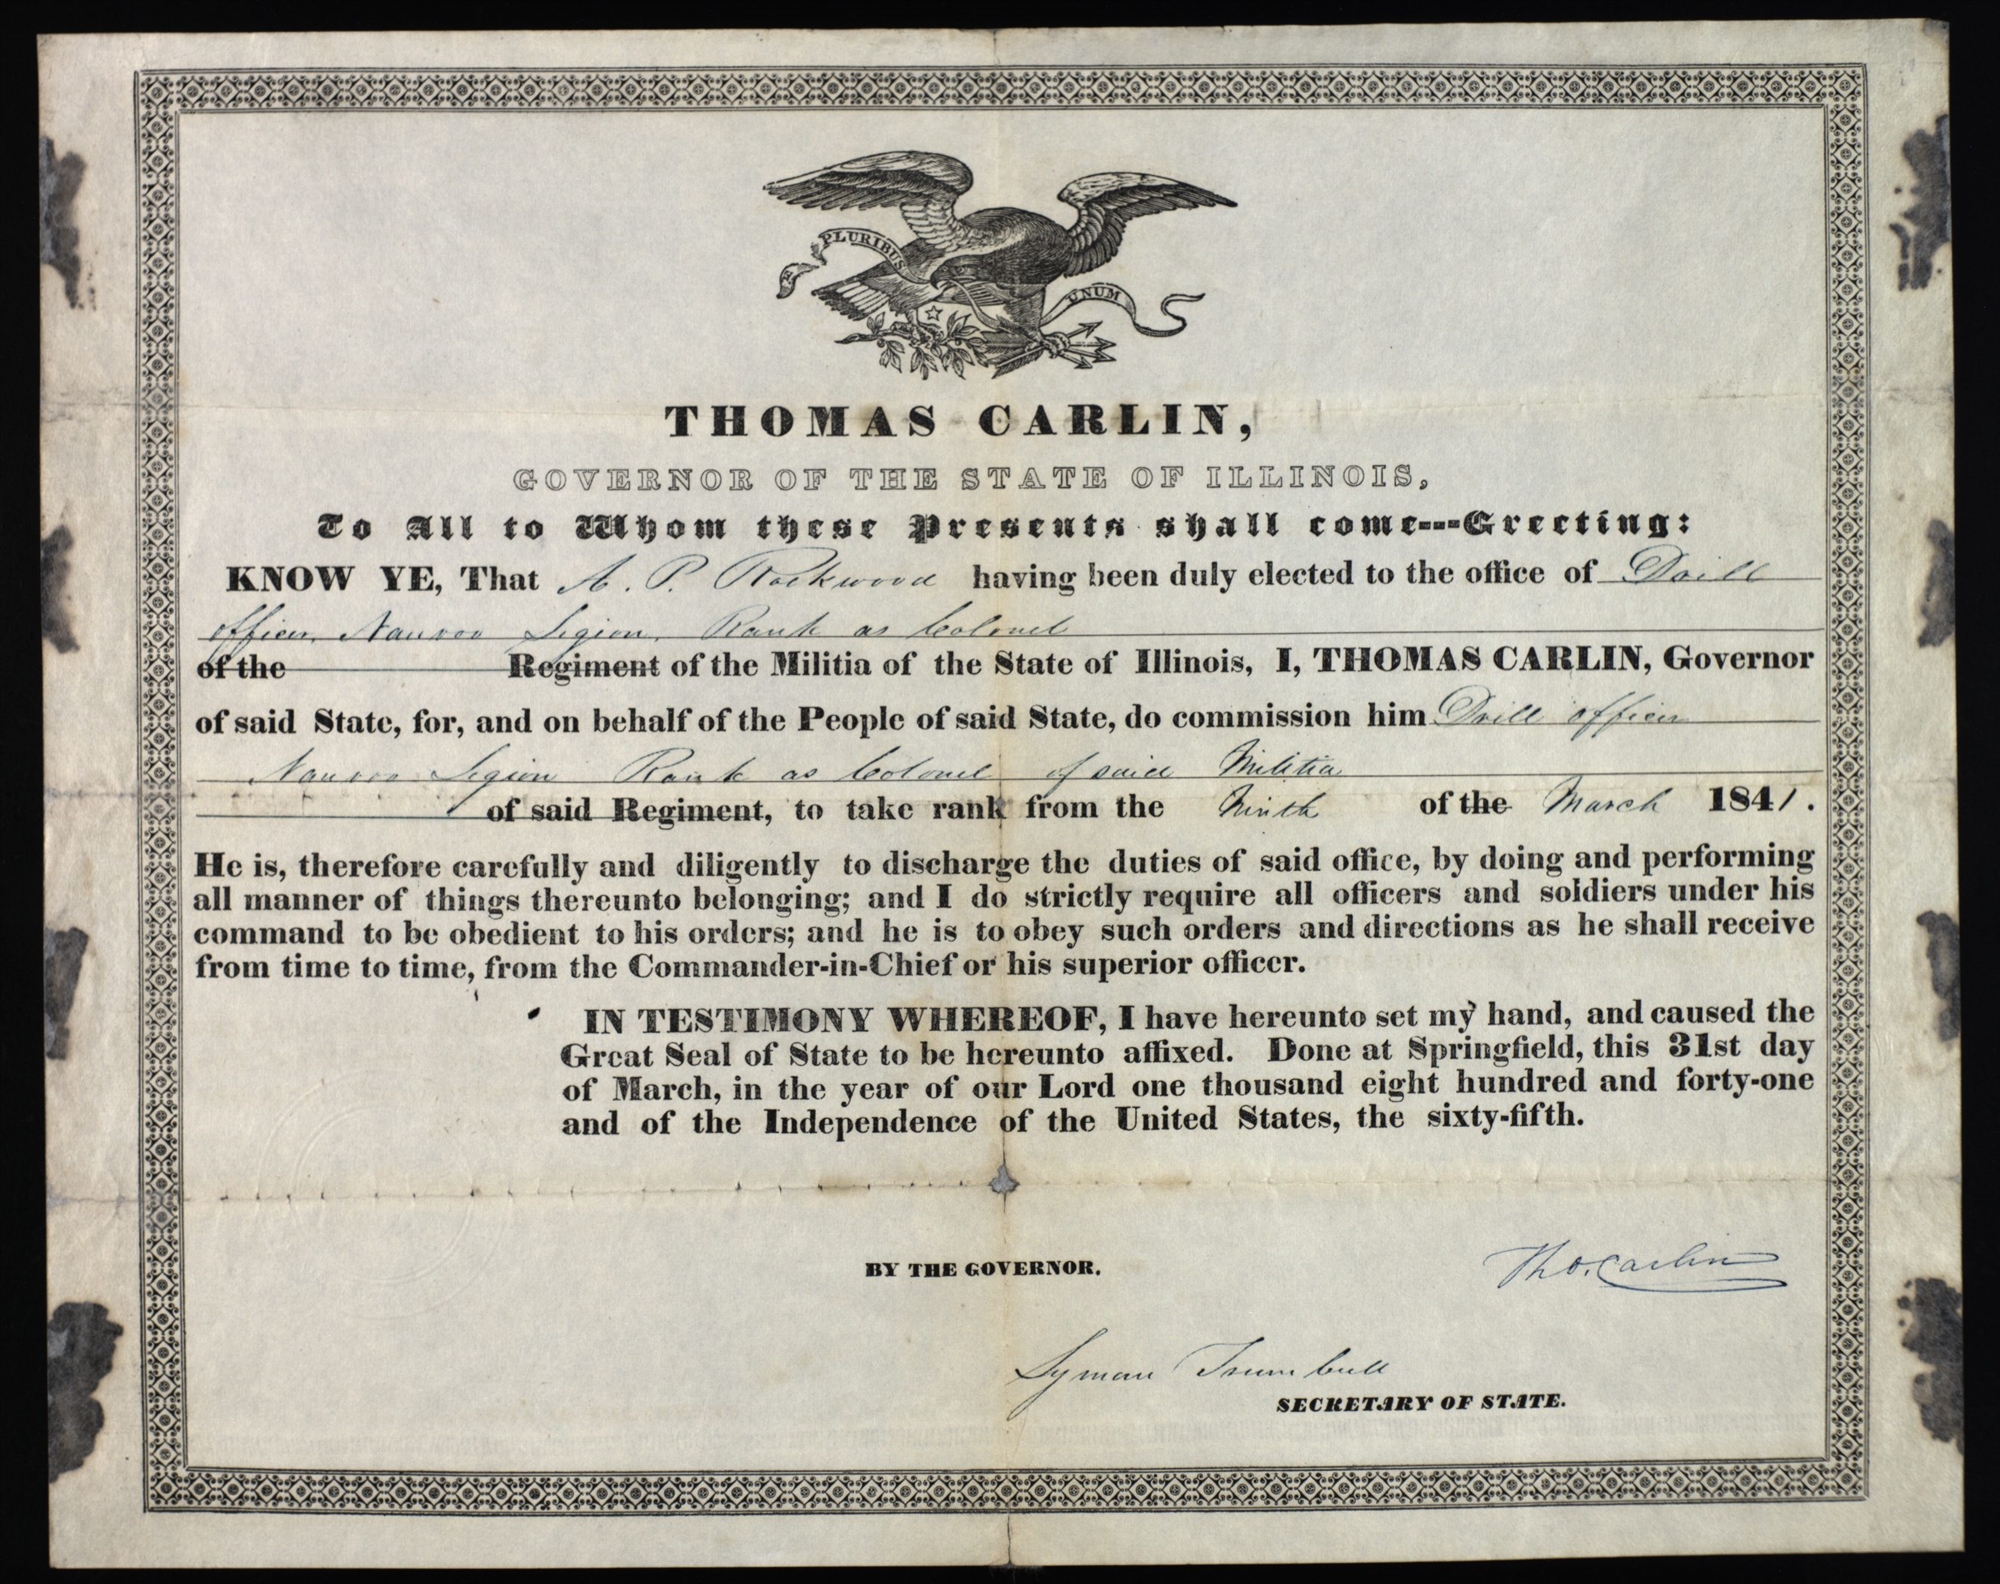 E PLURIBUS UNUM
THOMAS CARLIN,
GOVERNOR OF THE STATE OF ILLINOIS,
To All to Whom these Presents shall come---Greeting:
KNOW YE, That A. P. Rockwood having been duly elected to the office of Drill
officer, Nauvoo Legion, Rank as Colonel
of the Regiment of the Militia of the State of Illinois, I, THOMAS CARLIN, Governor
of said State, for, and on behalf of the People of said State, do commission him Drill officer
Nauvoo Legion Rank as Colonel of said Militia
of said Regiment, to take rank from the Ninth of the March 1841.
He is, therefore carefully and diligently to discharge the duties of said office, by doing and performing
all manner of things thereunto belonging; and I do strictly require all officers and soldiers under his
command to be obedient to his orders; and he is to obey such orders and directions as he shall receive
from time to time, from the Commander-in-Chief or his superior officer.
IN TESTIMONY WHEREOF, I have hereunto set my hand, and caused the
Great Seal of State to be hereunto affixed. Done at Springfield, this 31st day
of March, in the year of our Lord one thousand eight hundred and forty-one
and of the Independence of the United States, the sixty-fifth.
BY THE GOVERNOR.
Tho. Carlin
Lyman Trumbull
SECRETARY OF STATE.